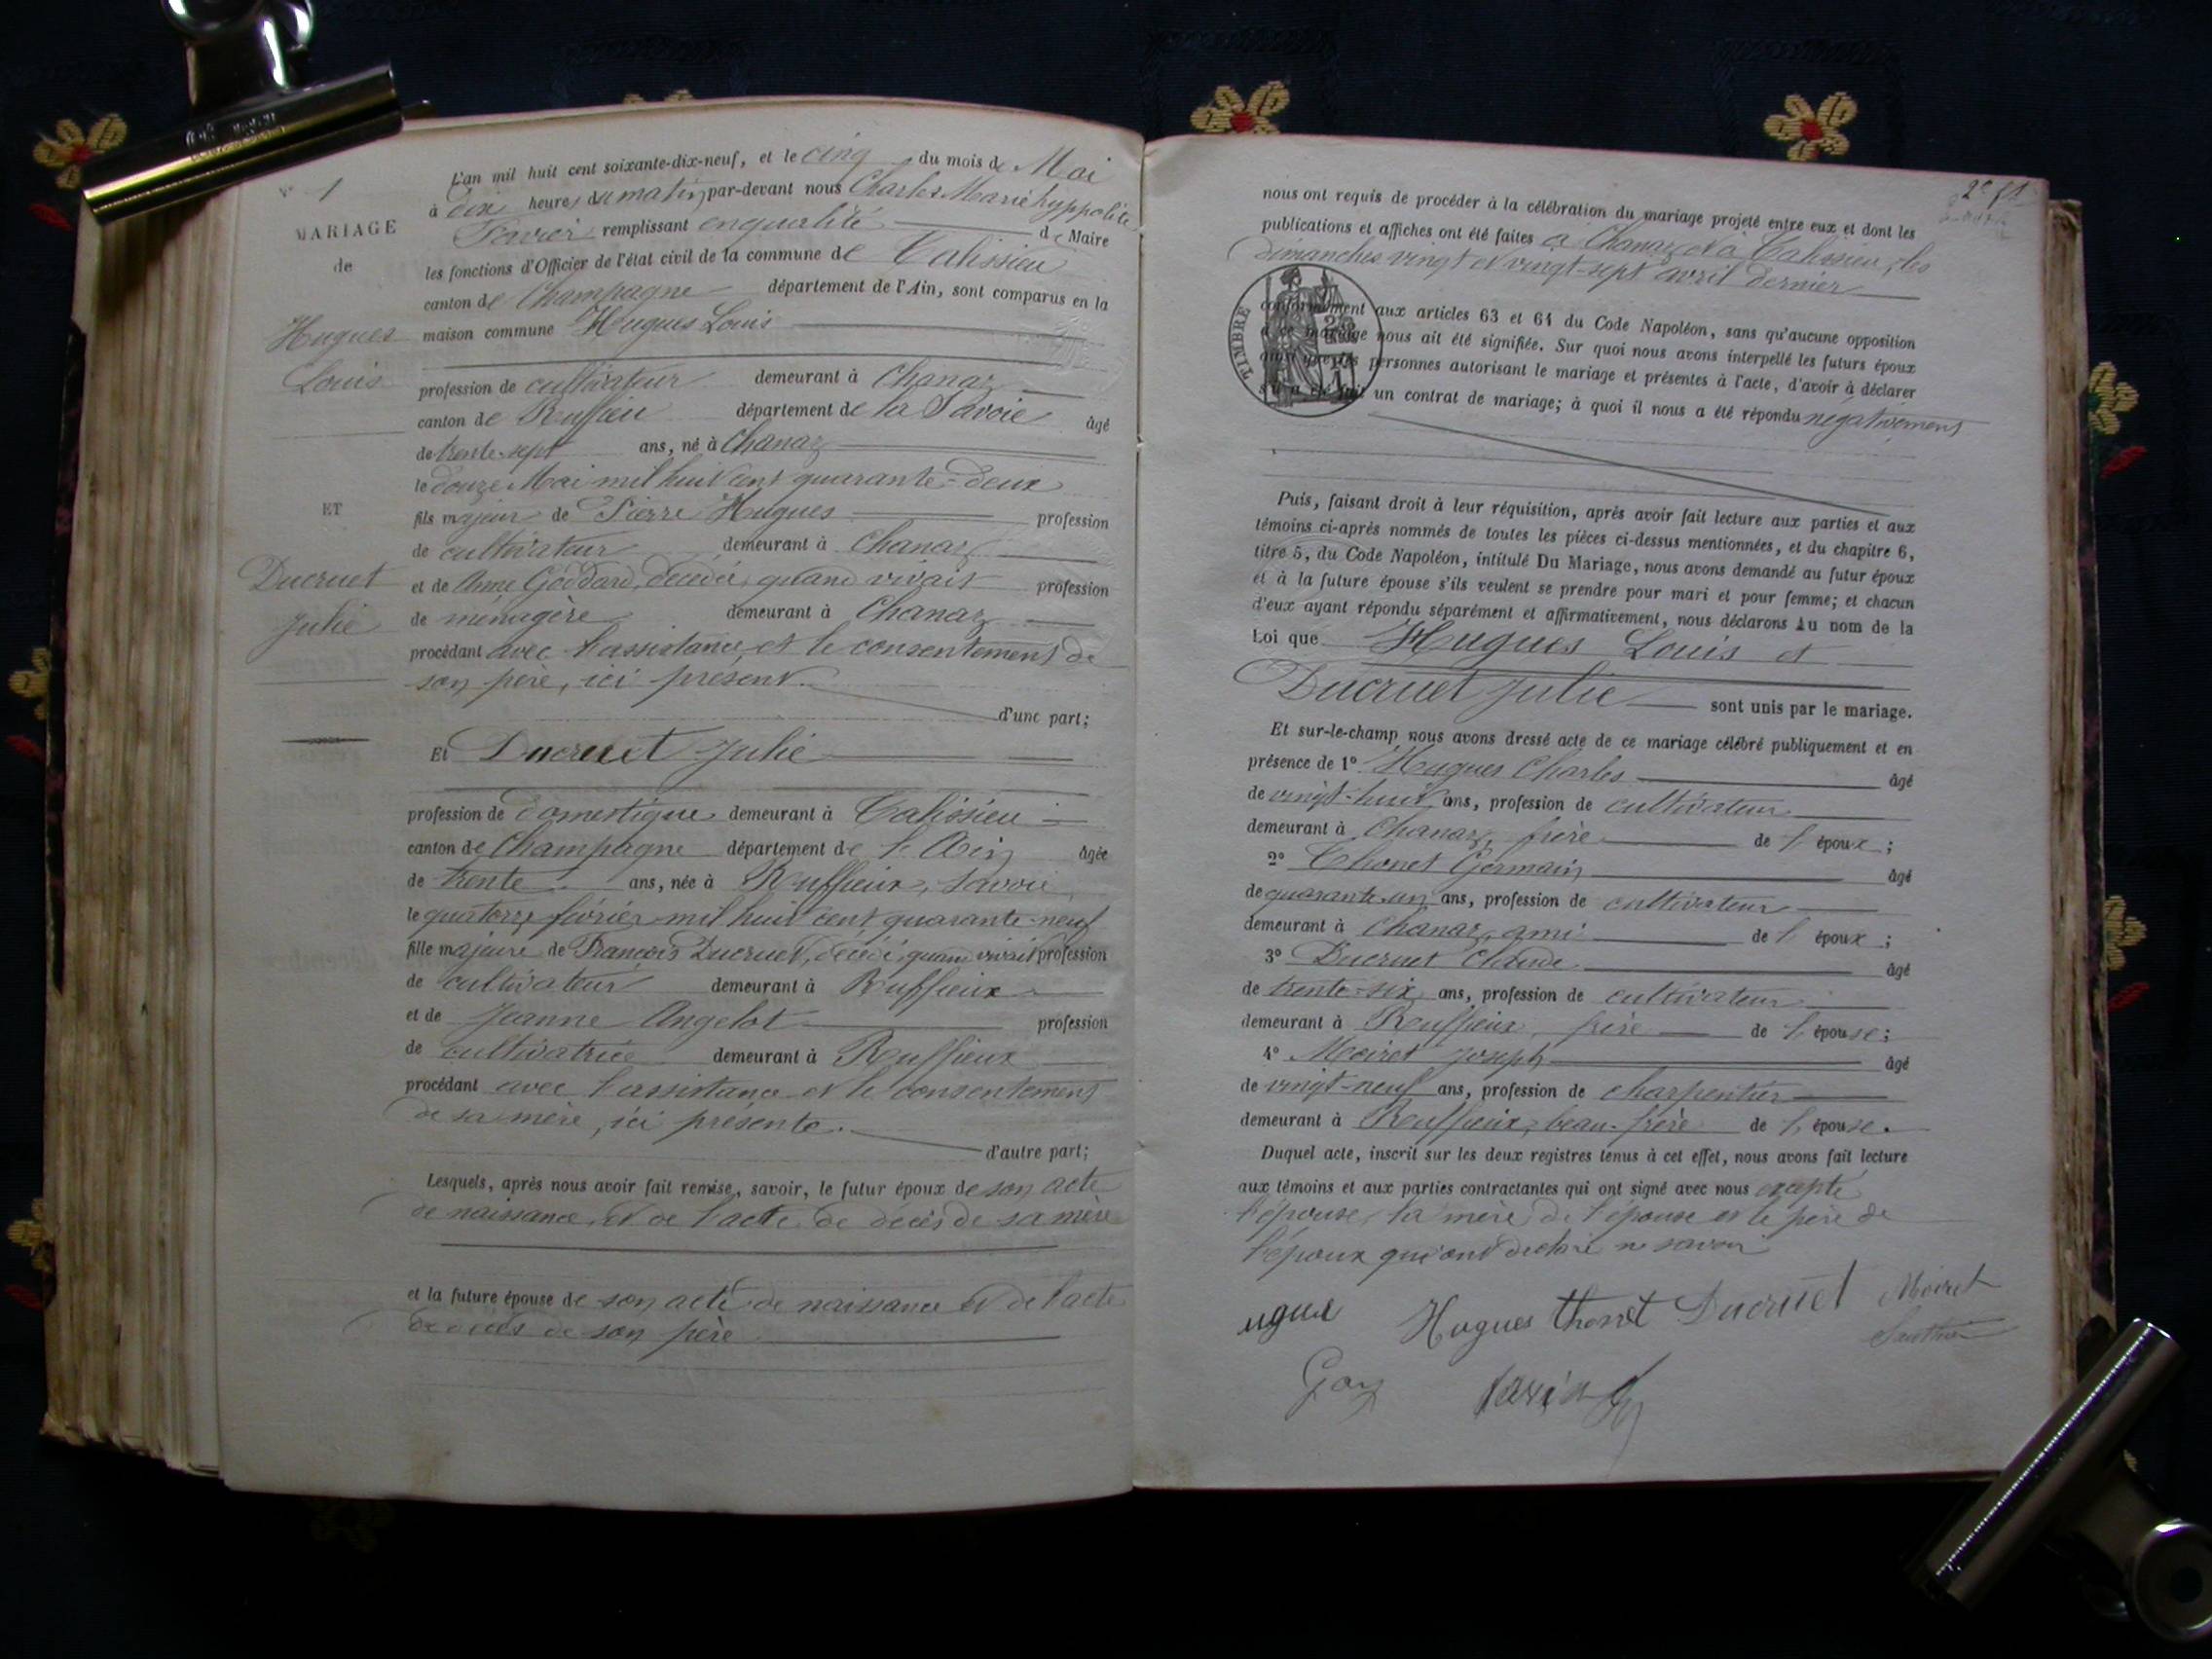 N° 1
MARIAGE
de
Hugues
Louis
ET
Ducruet
Julie
L'an mil huit cent soixante-dix-neuf, et le cinq du mois de Mai
à dix heures du matin par-devant nous Charles Marie hyppolite
remplissant en qualité de Maire
les fonctions d'Officier de l'état civil de la commune de Talissieu
canton de Champagne département de l'Ain, sont comparus en la
maison commune Hugues Louis
profession de cultivateur demeurant à Chanaz
canton de Ruffieu département de la Savoie âgé
de trente-sept ans, né à Chanaz
le douze Mai mil huit cent quarante-deux
fils majeur de Pierre Hugues profession
de cultivateur demeurant à Chanaz
et de Anne Goddard, décédée, quand vivait profession
de ménagère demeurant à Chanaz
procédant avec l'assistance et le consentement de
son père, ici présent.
d'une part;
Et Ducruet Julie
profession de domestique demeurant à Talissieu
canton de Champagne département de l'Ain âgée
de trente ans, née à Ruffieux, Savoie
le quatorze février mil huit cent quarante-neuf
fille majeure de François Ducruet, décédé, quand vivait profession
de cultivateur demeurant à Ruffieux
et de Jeanne Angelot profession
de cultivatrice demeurant à Ruffieux
procédant avec l'assistance et le consentement
de sa mère, ici présente.
d'autre part;
Lesquels, après nous avoir fait remise, savoir, le futur époux de son acte
de naissance, et de l'acte de décès de sa mère
et la future épouse de son acte de naissance et de l'acte
de décès de son père
2e f1
nous ont requis de procéder à la célébration du mariage projeté entre eux et dont les
publications et affiches ont été faites à Chanaz et à Talissieu, les
dimanches vingt et vingt-sept avril dernier
TIMBRE
conformément aux articles 63 et 64 du Code Napoléon, sans qu'aucune opposition
à ce mariage nous ait été signifiée. Sur quoi nous avons interpellé les futurs époux
ainsi que les personnes autorisant le mariage et présentes à l'acte, d'avoir à déclarer
s'il a été fait un contrat de mariage; à quoi il nous a été répondu négativement
Puis, faisant droit à leur réquisition, après avoir fait lecture aux parties et aux
témoins ci-après nommés de toutes les pièces ci-dessus mentionnées, et du chapitre 6,
titre 5, du Code Napoléon, intitulé Du Mariage, nous avons demandé au futur époux
et à la future épouse s'ils veulent se prendre pour mari et pour femme; et chacun
d'eux ayant répondu séparément et affirmativement, nous déclarons au nom de la
Loi que Hugues Louis et
Ducruet Julie sont unis par le mariage.
Et sur-le-champ nous avons dressé acte de ce mariage célébré publiquement et en
présence de 1° Hugues Charles âgé
de vingt-huit ans, profession de cultivateur
demeurant à Chanaz, frère de l'époux;
2° Thonet Germain âgé
de quarante-un ans, profession de cultivateur
demeurant à Chanaz, ami de l'époux;
3° Ducruet Claude âgé
de trente-six ans, profession de cultivateur
demeurant à Ruffieux, frère de l'épouse;
4° Moiret Joseph âgé
de vingt-neuf ans, profession de charpentier
demeurant à Ruffieux, beau-frère de l'épouse.
Duquel acte, inscrit sur les deux registres tenus à cet effet, nous avons fait lecture
aux témoins et aux parties contractantes qui ont signé avec nous excepté
l'épouse, la mère de l'épouse et le père de
l'époux qui ont déclaré ne savoir
ugue Hugues thonet Ducruet Moiret
Goy